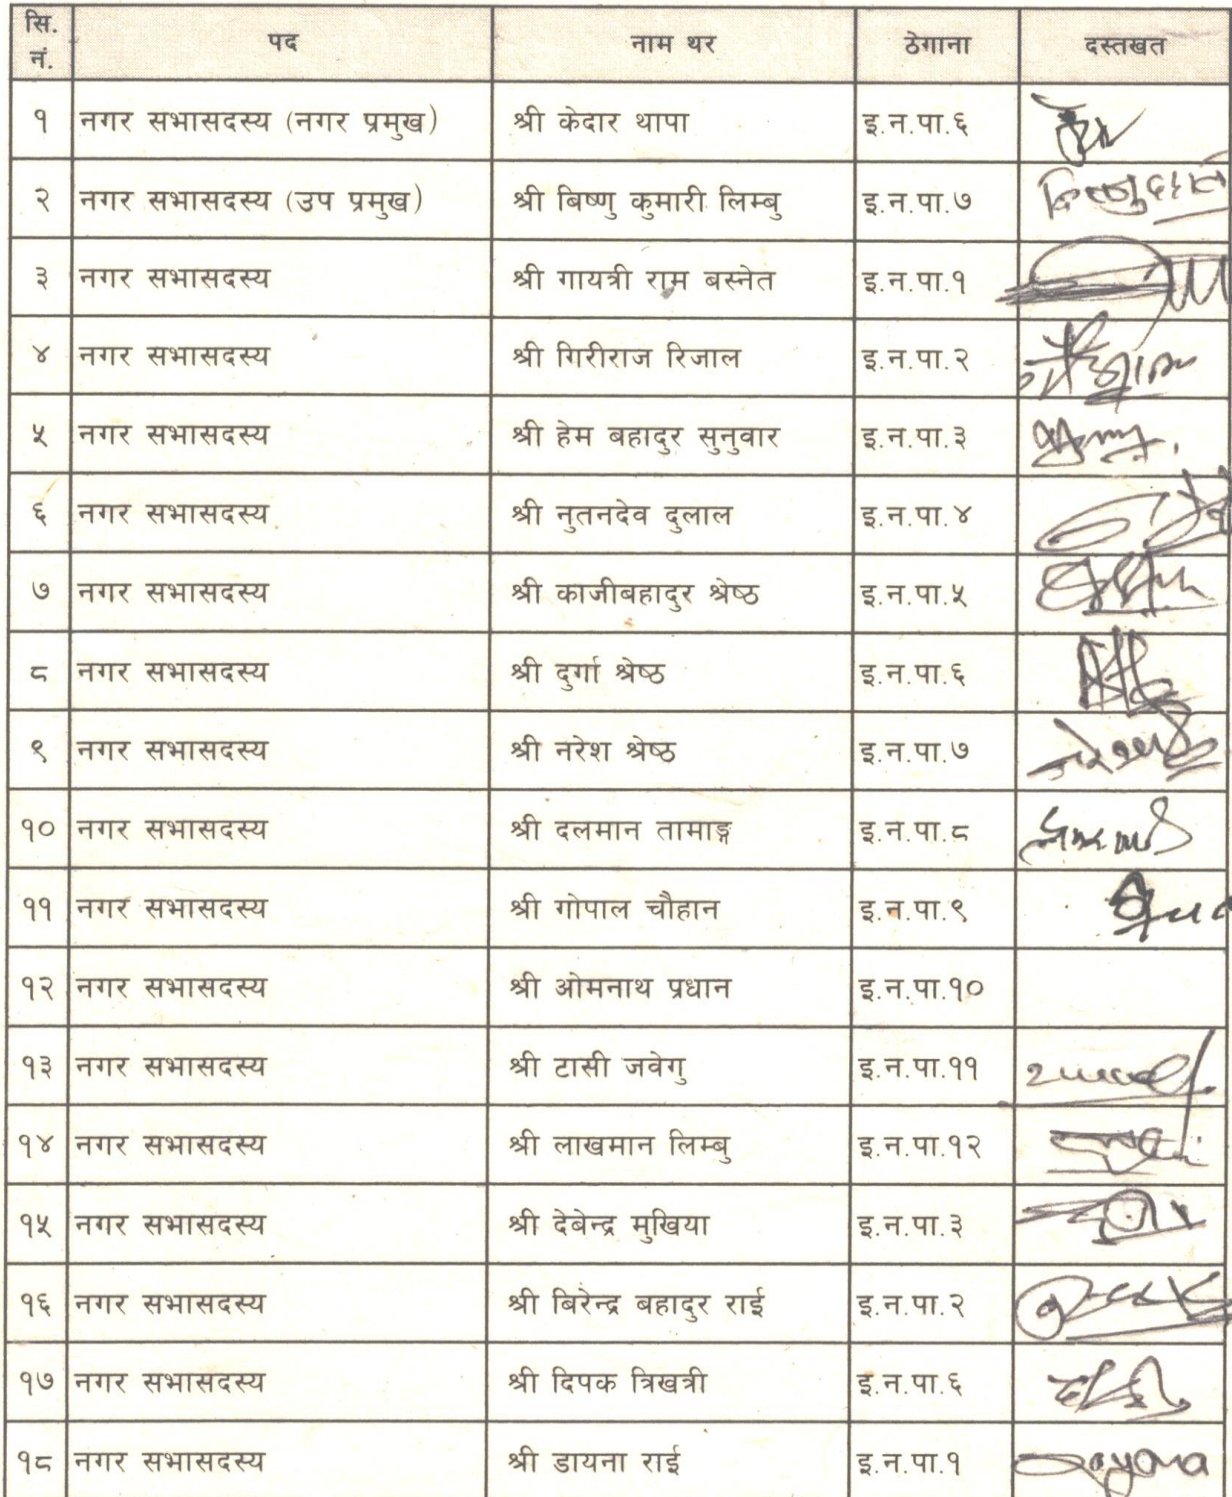 सि.नं. पद नाम थर ठेगाना दस्तखत
१ नगर सभासदस्य (नगर प्रमुख) श्री केदार थापा इ.न.पा.६
२ नगर सभासदस्य (उप प्रमुख) श्री बिष्णु कुमारी लिम्बु इ.न.पा.७
३ नगर सभासदस्य श्री गायत्री राम बस्नेत इ.न.पा.१
४ नगर सभासदस्य श्री गिरीराज रिजाल इ.न.पा.२
५ नगर सभासदस्य श्री हेम बहादुर सुनुवार इ.न.पा.३
६ नगर सभासदस्य श्री नुतनदेव दुलाल इ.न.पा.४
७ नगर सभासदस्य श्री काजीबहादुर श्रेष्ठ इ.न.पा.५
८ नगर सभासदस्य श्री दुर्गा श्रेष्ठ इ.न.पा.६
९ नगर सभासदस्य श्री नरेश श्रेष्ठ इ.न.पा.७
१० नगर सभासदस्य श्री दलमान तामाङ्ग इ.न.पा.८
११ नगर सभासदस्य श्री गोपाल चौहान इ.न.पा.९
१२ नगर सभासदस्य श्री ओमनाथ प्रधान इ.न.पा.१०
१३ नगर सभासदस्य श्री टासी जवेगु इ.न.पा.११
१४ नगर सभासदस्य श्री लाखमान लिम्बु इ.न.पा.१२
१५ नगर सभासदस्य श्री देबेन्द्र मुखिया इ.न.पा.३
१६ नगर सभासदस्य श्री बिरेन्द्र बहादुर राई इ.न.पा.२
१७ नगर सभासदस्य श्री दिपक त्रिखत्री इ.न.पा.६
१८ नगर सभासदस्य श्री डायना राई इ.न.पा.१